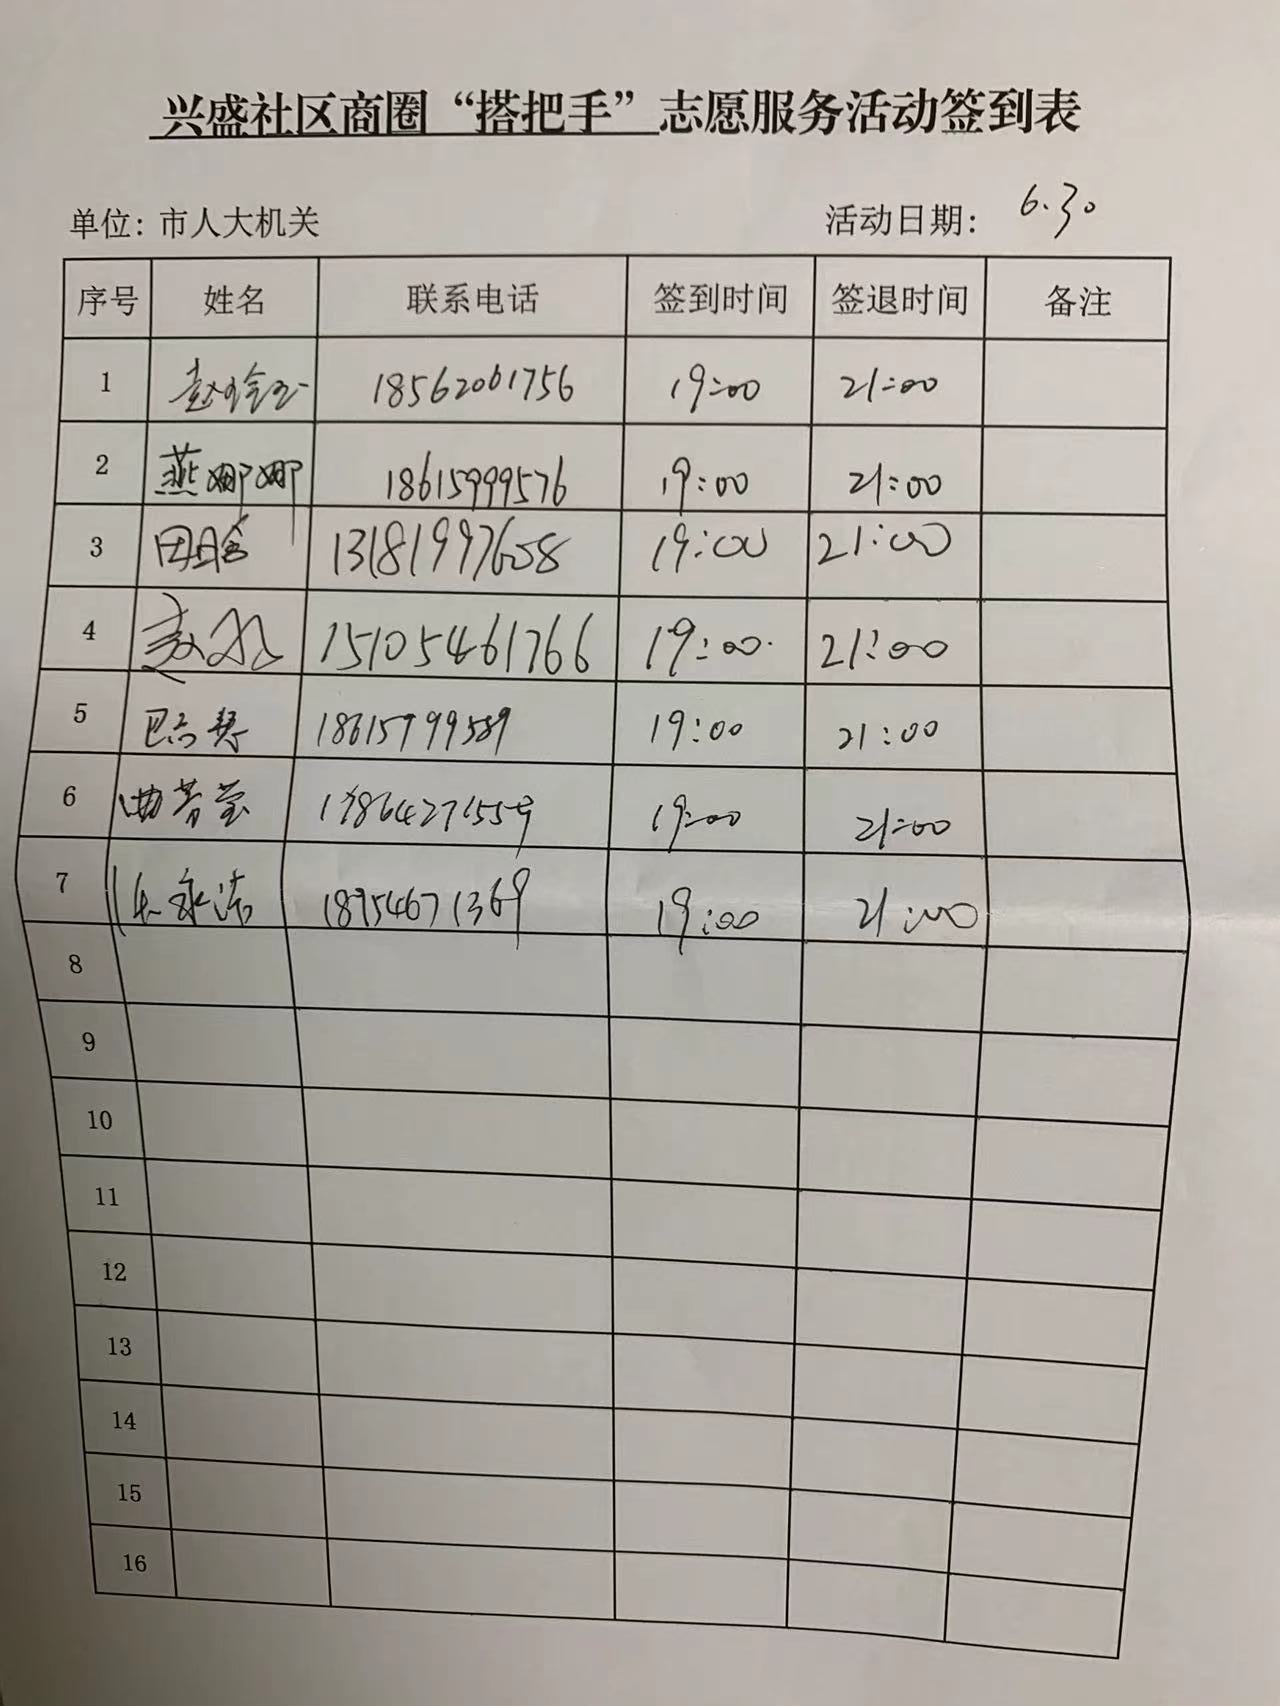 兴盛社区商圈“搭把手”志愿服务活动签到表
单位：市人大机关 活动日期： 6.30
序号 姓名 联系电话 签到时间 签退时间 备注
1 18562061756 19:00 21:00
2 燕娜娜 18615999576 19:00 21:00
3 田晗 13181997608 19:00 21:00
4 15105461766 19:00 21:00
5 18615999589 19:00 21:00
6 曲芳莹 19:00 21:00
7 18954671369 19:00 21:00
8
9
10
11
12
13
14
15
16